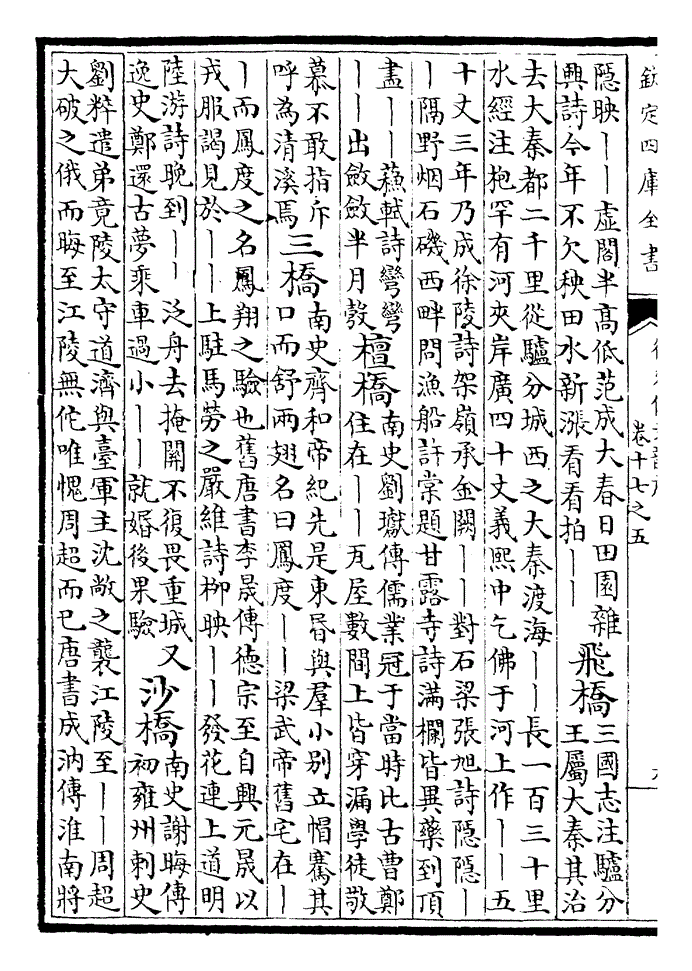 欽定四庫全書
卷十七之五
隱映——虛閣半高低范成大春日田園雜
興詩今年不欠秧田水新漲看看拍——
飛橋
三國志注驢分
王屬大秦其治
去大秦都二千里從驢分城西之大秦渡海——長一百三十里
水經注抱罕有河夾岸廣四十丈義熙中乞佛于河上作——五
十丈三年乃成徐陵詩架嶺承金闕——對石梁張旭詩隱隱—
—隔野烟石磯西畔問漁船許棠題甘露寺詩滿欄皆異藥到頂
盡——蘓軾詩彎彎
——出斂斂半月彀
檀橋
南史劉瓛傳儒業冠于當時比古曹鄭
住在——瓦屋數間上皆穿漏學徒敬
慕不敢指斥
呼為清溪焉
三橋
南史齊和帝紀先是東昏與羣小别立帽騫其
口而舒兩翅名曰鳳度——梁武帝舊宅在—
—而鳳度之名鳳翔之驗也舊唐書李晟傳德宗至自興元晟以
戎服謁見於——上駐馬勞之嚴維詩栁映——發花連上道明
陸游詩晚到——泛舟去掩關不復畏重城又
逸史鄭還古夢乘車過小——就婚後果驗
沙橋
南史謝晦傳
初雍州刺史
劉粹遣弟竟陵太守道濟與臺軍主沈敞之襲江陵至——周超
大破之俄而晦至江陵無佗唯愧周超而已唐書成汭傳淮南將